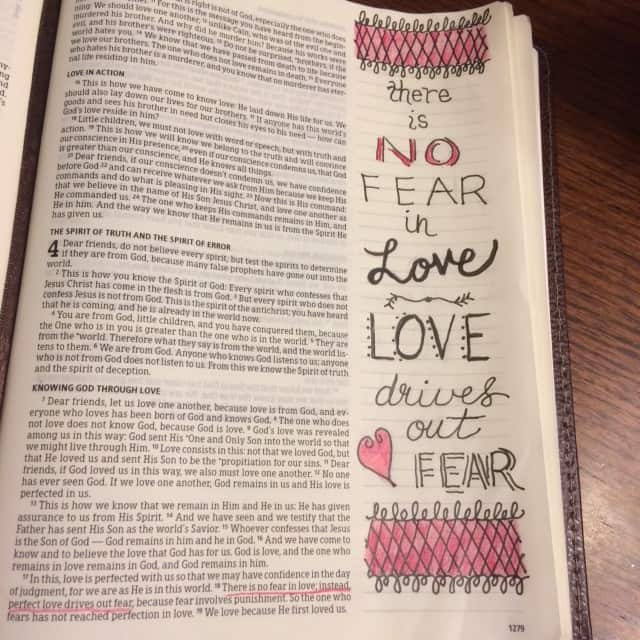 is right is not of God, especially the one who does
For this is the message you have heard from the begin-
ning: We should love one another, unlike Cain, who was of the evil one and
murdered his brother. And why did he murder him? Because his works were
evil, and his brother's were righteous. Do not be surprised, brothers, if the
world hates you. 14 We know that we have passed from death to life because
we love our brothers. The one who does not love remains in death. 15 Everyone
who hates his brother is a murderer, and you know that no murderer has eter-
nal life residing in him.
LOVE IN ACTION
16 This is how we have come to know love: He laid down His life for us. We
should also lay down our lives for our brothers. 17 If anyone has this world's
goods and sees his brother in need but closes his eyes to his need — how can
God's love reside in him?
18 Little children, we must not love with word or speech, but with truth and
action. 19 This is how we will know we belong to the truth and will convince
our conscience in His presence, 20 even if our conscience condemns us, that God
is greater than our conscience, and He knows all things.
21 Dear friends, if our conscience doesn't condemn us, we have confidence
before God 22 and can receive whatever we ask from Him because we keep His
commands and do what is pleasing in His sight. 23 Now this is His command:
that we believe in the name of His Son Jesus Christ, and love one another as
He commanded us. 24 The one who keeps His commands remains in Him, and
He in him. And the way we know that He remains in us is from the Spirit He
has given us.
THE SPIRIT OF TRUTH AND THE SPIRIT OF ERROR
4 Dear friends, do not believe every spirit, but test the spirits to determine
if they are from God, because many false prophets have gone out into the
world.
2 This is how you know the Spirit of God: Every spirit who confesses that
Jesus Christ has come in the flesh is from God. 3 But every spirit who does not
confess Jesus is not from God. This is the spirit of the antichrist; you have heard
that he is coming, and he is already in the world now.
4 You are from God, little children, and you have conquered them, because
the One who is in you is greater than the one who is in the world. 5 They are
from the *world. Therefore what they say is from the world, and the world lis-
tens to them. 6 We are from God. Anyone who knows God listens to us; anyone
who is not from God does not listen to us. From this we know the Spirit of truth
and the spirit of deception.
KNOWING GOD THROUGH LOVE
7 Dear friends, let us love one another, because love is from God, and ev-
eryone who loves has been born of God and knows God. 8 The one who does
not love does not know God, because God is love. 9 God's love was revealed
among us in this way: God sent His *One and Only Son into the world so that
we might live through Him. 10 Love consists in this: not that we loved God, but
that He loved us and sent His Son to be the *propitiation for our sins. 11 Dear
friends, if God loved us in this way, we also must love one another. 12 No one
has ever seen God. If we love one another, God remains in us and His love is
perfected in us.
13 This is how we know that we remain in Him and He in us: He has given
assurance to us from His Spirit. 14 And we have seen and we testify that the
Father has sent His Son as the world's Savior. 15 Whoever confesses that Jesus
is the Son of God — God remains in him and he in God. 16 And we have come to
know and to believe the love that God has for us. God is love, and the one who
remains in love remains in God, and God remains in him.
17 In this, love is perfected with us so that we may have confidence in the day
of judgment, for we are as He is in this world. 18 There is no fear in love; instead,
perfect love drives out fear, because fear involves punishment. So the one who
fears has not reached perfection in love. 19 We love because He first loved us.
there
is
NO
FEAR
in
Love
LOVE
drives
out
FEAR
1279